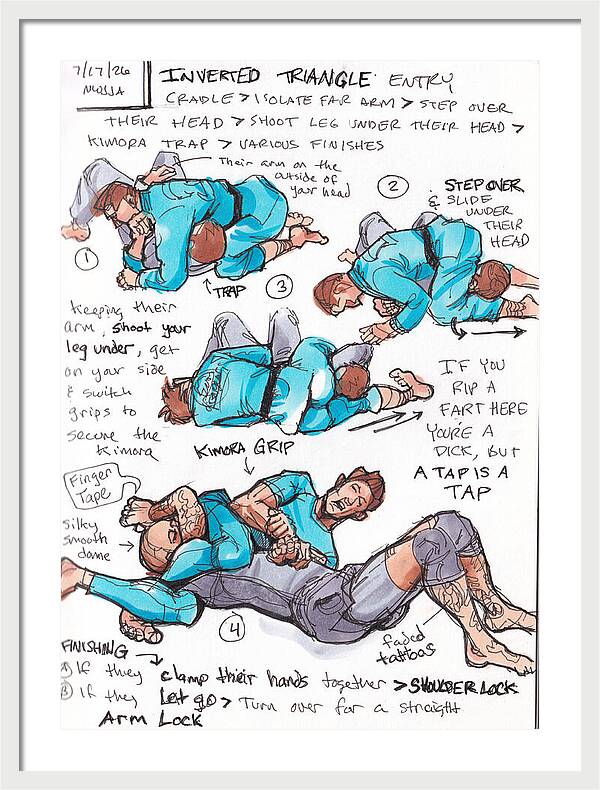 7/17/26
INVERTED TRIANGLE ENTRY
CRADLE > ISOLATE FAR ARM > STEP OVER
THEIR HEAD > SHOOT LEG UNDER THEIR HEAD >
KIMORA TRAP > VARIOUS FINISHES
Their arm on the
outside of
your head
1
TRAP
2
STEP OVER
& SLIDE
UNDER
THEIR
HEAD
3
Keeping their
arm, shoot your
leg under, get
on your side
& switch
grips to
secure the
Kimora
KIMORA GRIP
IF YOU
RIP A
FART HERE
YOU'RE A
DICK, BUT
A TAP IS A
TAP
Finger
Tape
silky
smooth
dome
4
faded
tattoos
FINISHING
A If they clamp their hands together > SHOULDER LOCK
B If they Let go > Turn over for a straight
Arm Lock